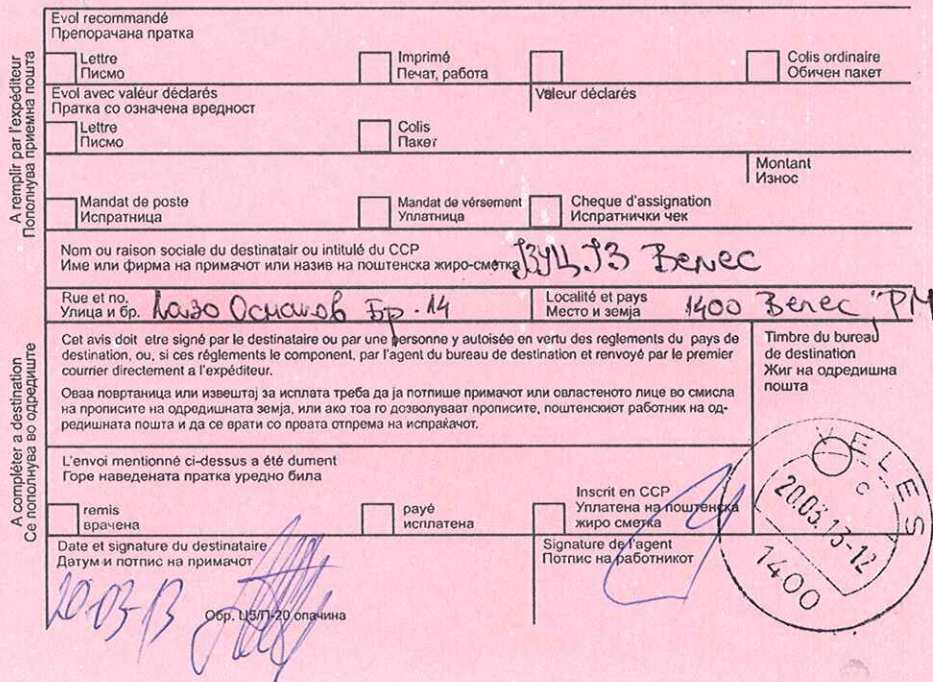 A remplir par l'expéditeur
Пополнува приемна пошта
Evol recommandé
Препорачана пратка
Lettre
Писмо
Imprimé
Печат, работа
Colis ordinaire
Обичен пакет
Evol avec valéur déclarés
Пратка со означена вредност
Valeur déclarés
Lettre
Писмо
Colis
Пакет
Montant
Износ
Mandat de poste
Испратница
Mandat de vérsement
Уплатница
Cheque d'assignation
Испратнички чек
Nom ou raison sociale du destinatair ou intitulé du CCP
Име или фирма на примачот или назив на поштенска жиро-сметка Велес
Rue et no.
Улица и бр. Лазо Осмаков Бр. 14
Localité et pays
Место и земја 1400 Велес "РМ
A compléter a destination
Се пополнува во одредиште
Cet avis doit etre signé par le destinataire ou par une personne y autoisée en vertu des reglements du pays de
destination, ou, si ces réglements le component, par l'agent du bureau de destination et renvoyé par le premier
courrier directement a l'expéditeur.
Оваа повртаница или извештај за исплата треба да ја потпише примачот или овластеното лице во смисла
на прописите на одредишната земја, или ако тоа го дозволуваат прописите, поштенскиот работник на од-
редишната пошта и да се врати со првата отпрема на испраќачот.
Timbre du bureau
de destination
Жиг на одредишна
пошта
L'envoi mentionné ci-dessus a été dument
Горе наведената пратка уредно била
remis
врачена
payé
исплатена
Inscrit en CCP
Уплатена на поштенска
жиро сметка
VELES
C
20.03.13-12
1400
Date et signature du destinataire
Датум и потпис на примачот
20-03-13
Обр. Ц5/П-20 опачина
Signature de l'agent
Потпис на работникот